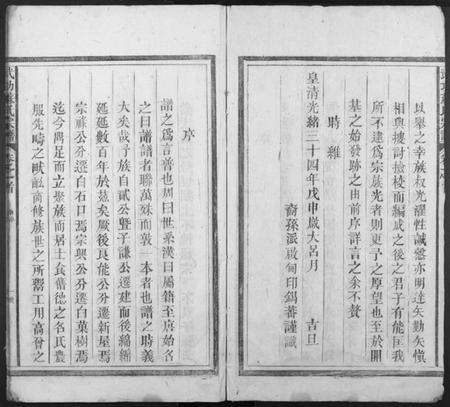 以舉之幸族叔光濯性誠慤亦明達矢勤矢愼
相與搜討撿校而編成之後之君子有能匡我
所不逮爲宗族光者則更予之厚望也至於開
基之始發跡之由前序詳言之余不贅
時雜
皇淸光緒三十四年戊申歲大呂月 吉旦
裔孫派啟甸印錫蕃謹識
序
譜之爲言普也周曰世系漢曰屬籍至唐始名
之曰譜譜者聯萬殊而敦一本者也譜之時義
大矣哉予族自貳公曁子謙公遷建而後緜緜
延延數百年於茲矣厥後良能公分遷新屋焉
宗祿公分遷白石口焉宗興公分遷白菓樹焉
迄今鼎足而立聚族而居士食舊德之名氏農
服先疇之畎畝商修族世之所鬻工用高曾之